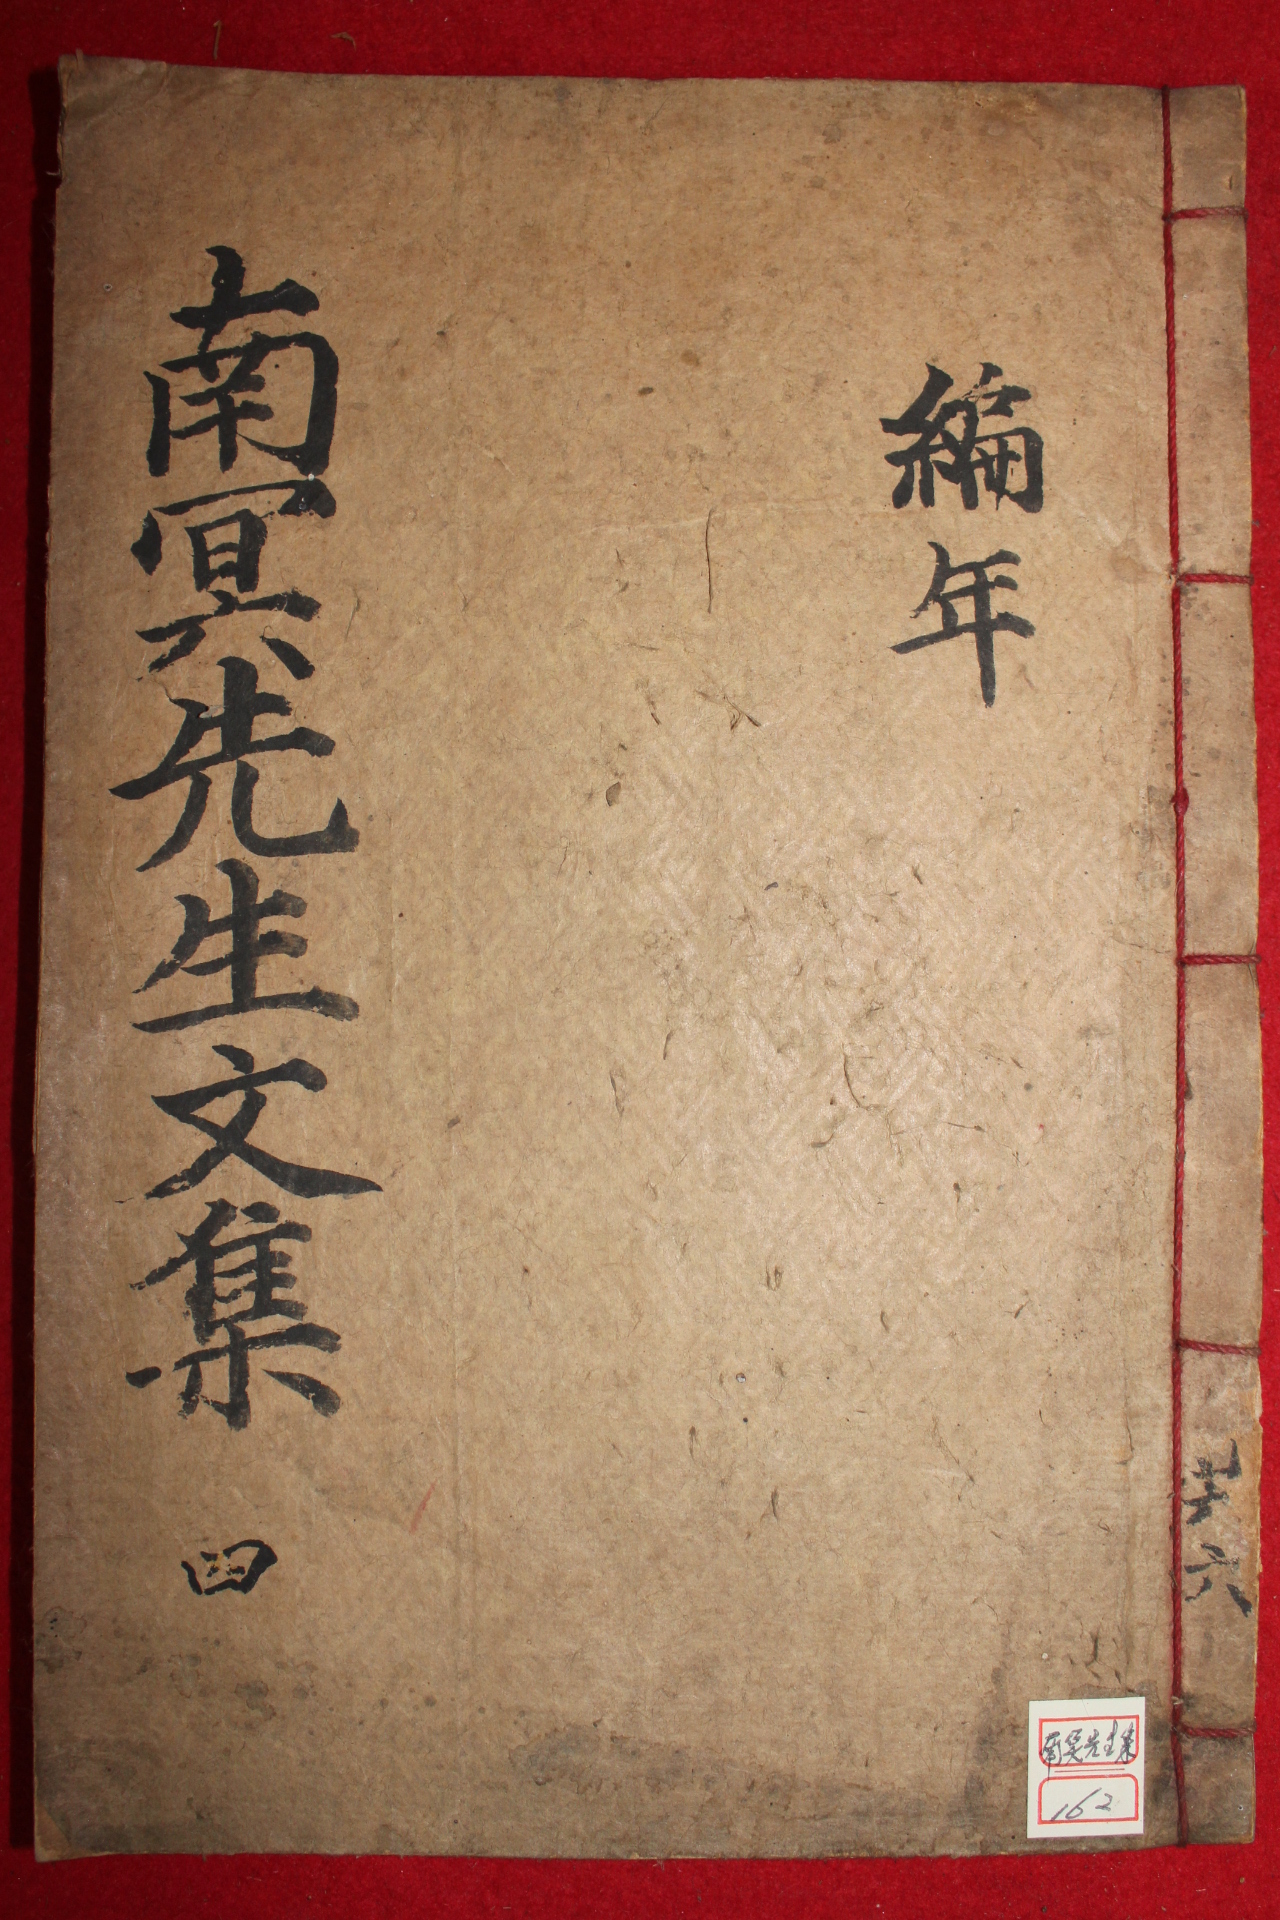 編年
南冥先生文集
四
共六
南冥先生集
162